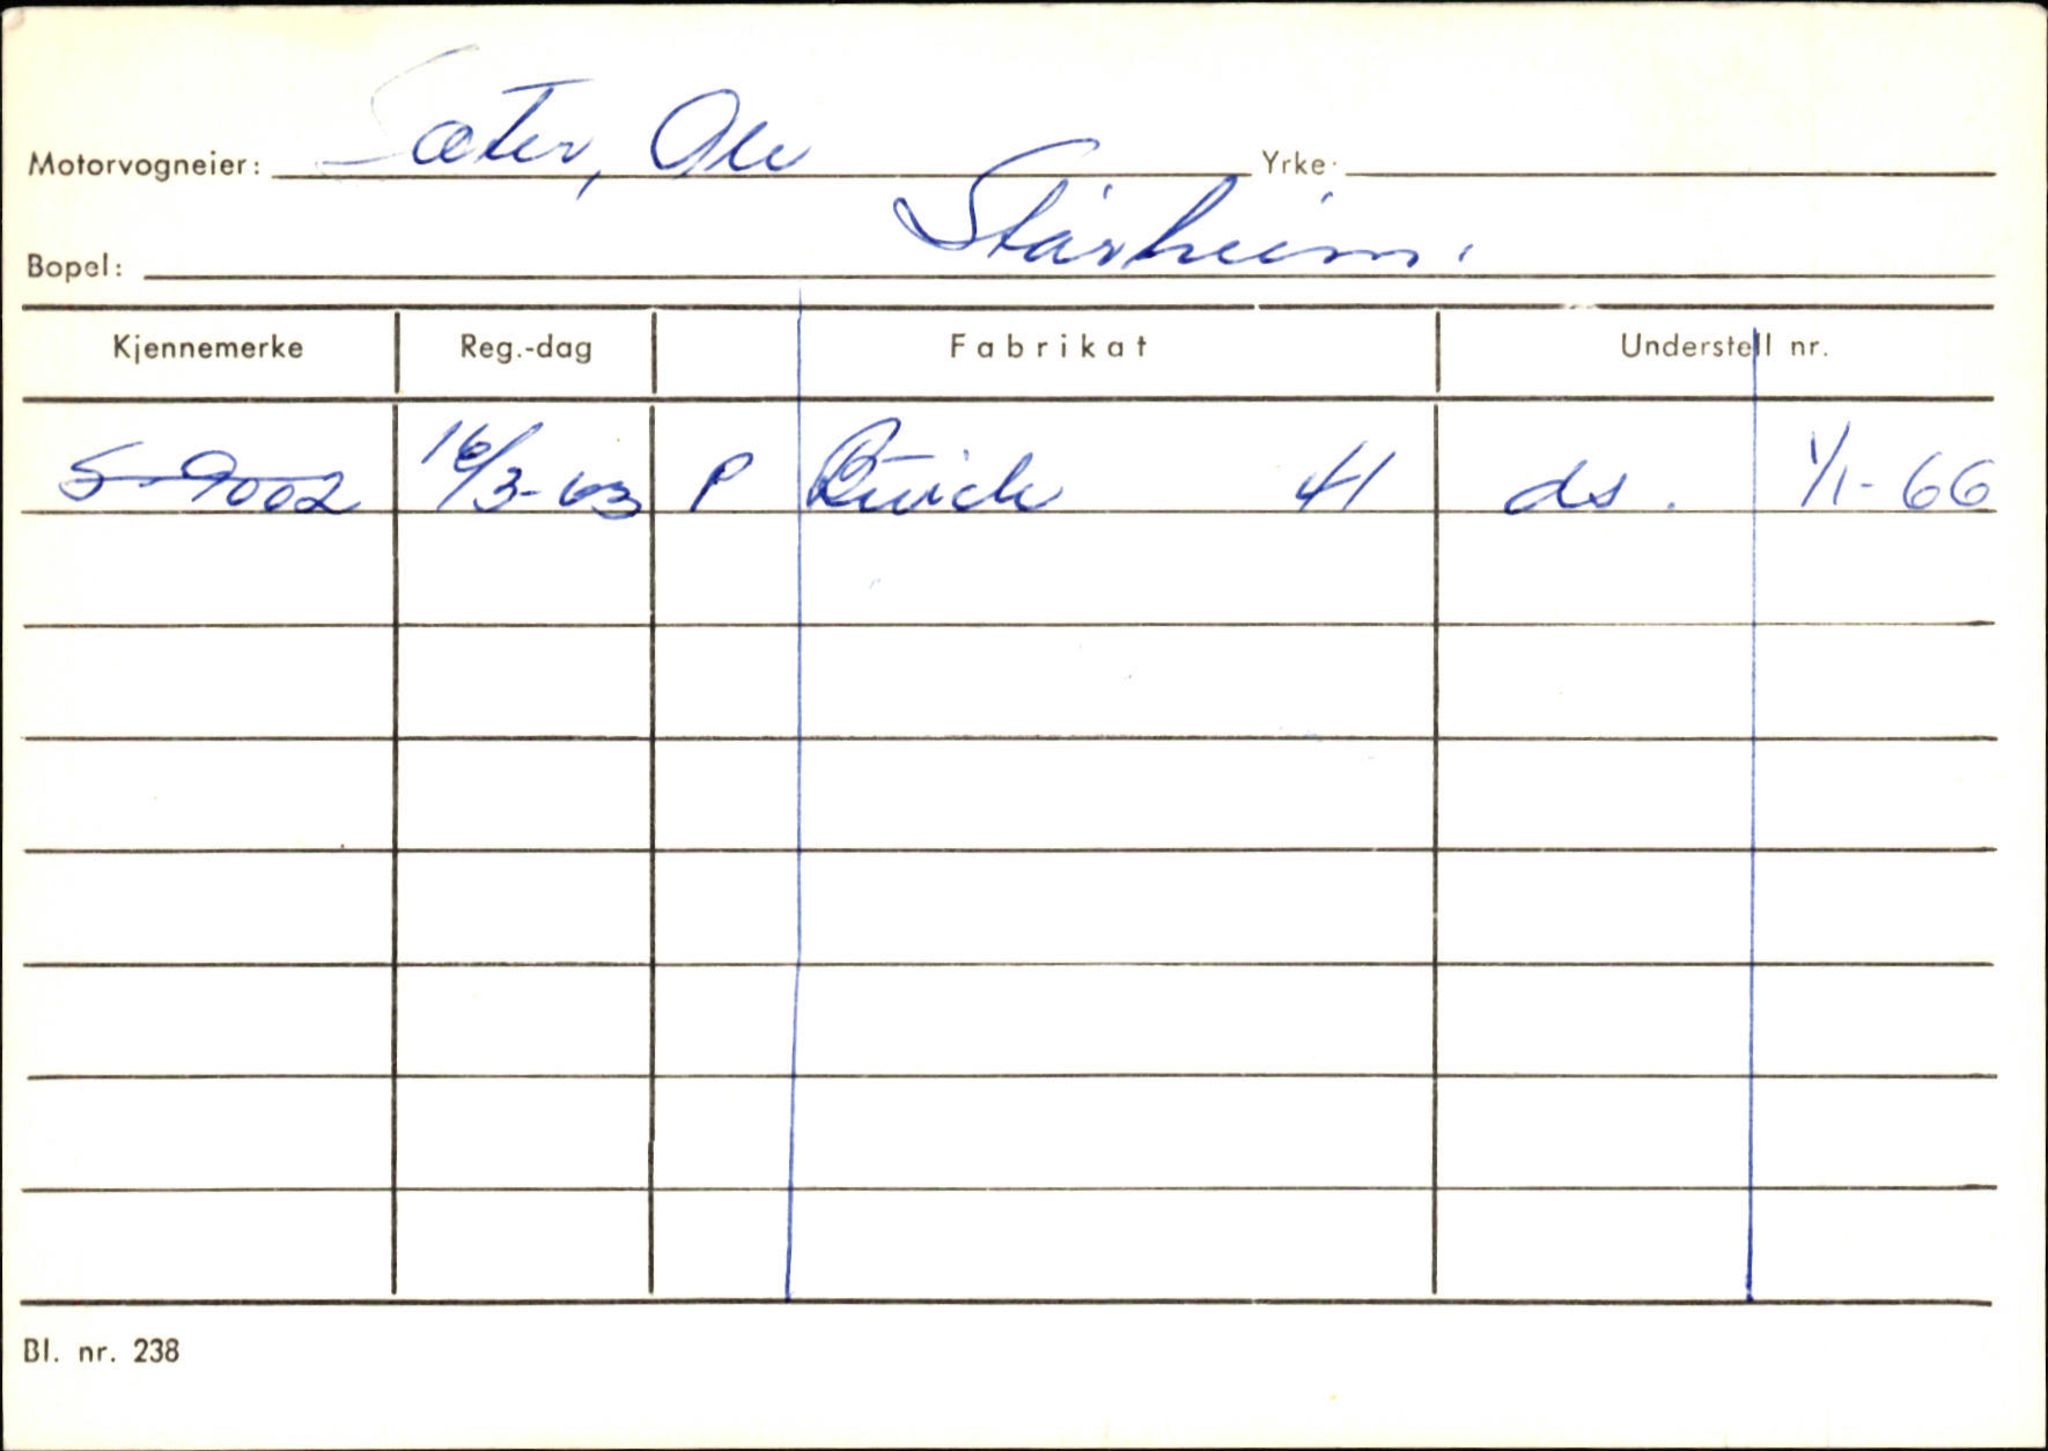 Motorvogneier: Sæter, Ole Yrke:
Bopel: Stårheim.
Kjennemerke Reg.-dag Fabrikat Understell nr.
S-9002 16/3-63 P Buick 41 ds. 1/1-66
Bl. nr. 238